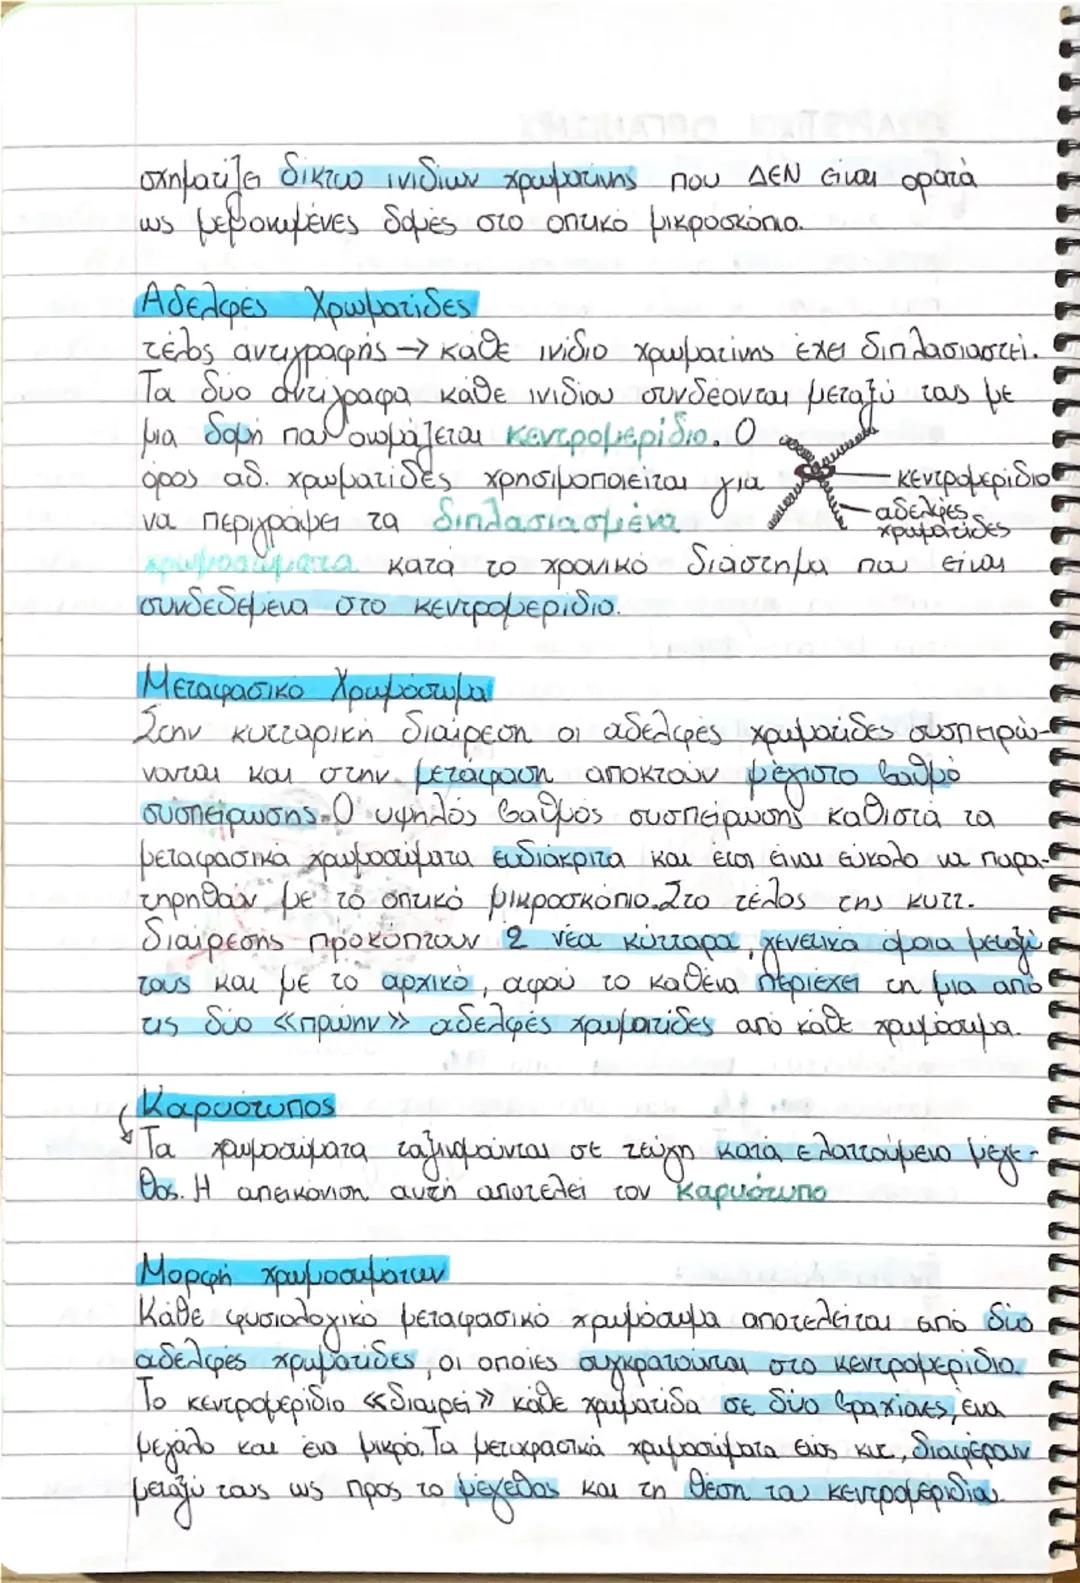 σχηματίζει δίκτυο ινιδίων χρωματίνης που ΔΕΝ είναι ορατά
ως μεμονωμένες δομές στο οπτικό μικροσκόπιο.
Αδελφές Χρωματίδες
τέλος αντιγραφής → κάθε ινίδιο χρωματίνης έχει διπλασιαστεί.
Τα δύο αντίγραφα κάθε ινιδίου συνδέονται μεταξύ τους με
μια δομή που ονομάζεται κεντρομερίδιο. Ο
όρος αδ. χρωματίδες χρησιμοποιείται για
να περιγράψει τα διπλασιασμένα
χρωμοσώματα κατά το χρονικό διάστημα που είναι
συνδεδεμένα στο κεντρομερίδιο.
κεντρομερίδιο
αδελφές
χρωματίδες
Μεταφασικό Χρωμόσωμα
Στην κυτταρική διαίρεση οι αδελφές χρωματίδες συσπειρώ-
νονται και στην μετάφαση αποκτούν μέγιστο βαθμό
συσπείρωσης. Ο υψηλός βαθμός συσπείρωσης καθιστά τα
μεταφασικά χρωμοσώματα ευδιάκριτα και έτσι είναι εύκολο να παρα-
τηρηθούν με το οπτικό μικροσκόπιο. Στο τέλος της κυττ.
διαίρεσης προκύπτουν 2 νέα κύτταρα, γενετικά όμοια μεταξύ
τους και με το αρχικό, αφού το καθένα περιέχει τη μια από
τις δύο «πρώην» αδελφές χρωματίδες από κάθε χρωμόσωμα.
Καρυότυπος
Τα χρωμοσώματα ταξινομούνται σε ζεύγη κατά ελαττούμενο μέγε-
θος. Η απεικόνιση αυτή αποτελεί τον καρυότυπο
Μορφή χρωμοσωμάτων
Κάθε φυσιολογικό μεταφασικό χρωμόσωμα αποτελείται από δύο
αδελφές χρωματίδες, οι οποίες συγκρατούνται στο κεντρομερίδιο.
Το κεντρομερίδιο «διαιρεί» κάθε χρωματίδα σε δύο βραχίονες, ένα
μεγάλο και ένα μικρό. Τα μεταφασικά χρωμοσώματα ενός κυτ., διαφέρουν
μεταξύ τους ως προς το μέγεθος και τη θέση του κεντρομεριδίου.